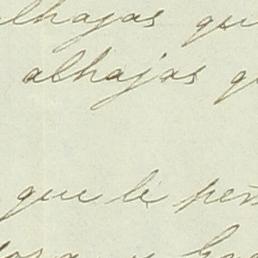 alhajas qu
alhajas q
que le per
y ha